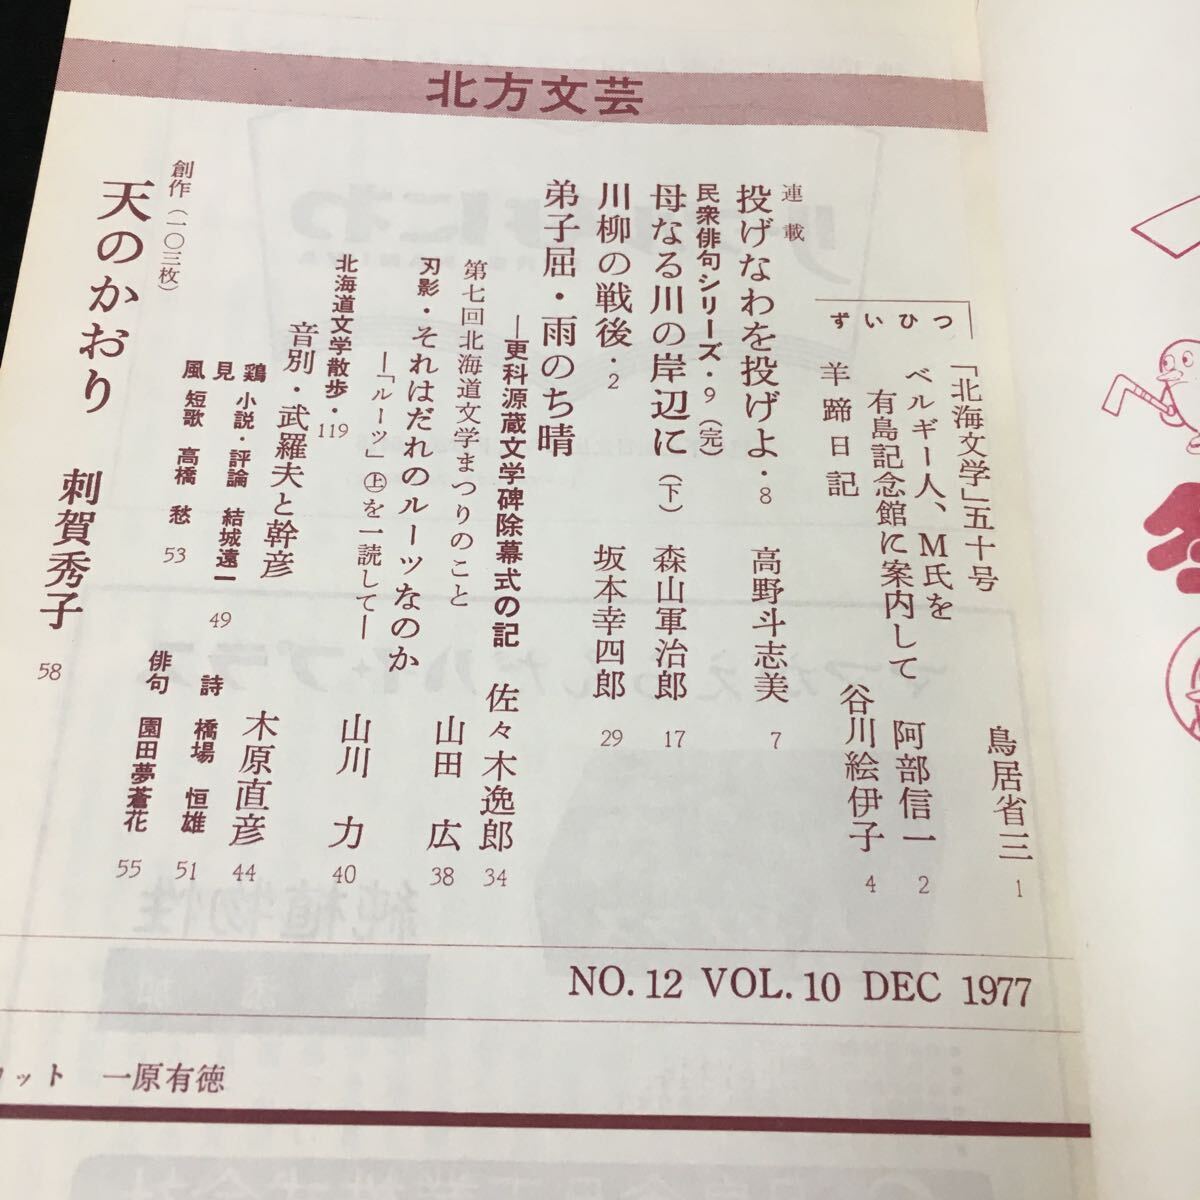 北方文芸
ずいひつ
「北海文学」五十号
鳥居省三
1
ベルギー人、M氏を
有島記念館に案内して
阿部信一
2
羊蹄日記
谷川絵伊子
4
連載
投げなわを投げよ・8
高野斗志美
7
民衆俳句シリーズ・9(完)
母なる川の岸辺に(下)
森山軍治郎
17
川柳の戦後・2
坂本幸四郎
29
弟子屈・雨のち晴
―更科源蔵文学碑除幕式の記
佐々木逸郎
34
第七回北海道文学まつりのこと
山田広
38
刃影・それはだれのルーツなのか
―「ルーツ」㊤を一読して―
山川力
40
北海道文学散歩・119
音別・武羅夫と幹彦
木原直彦
44
鶏見風
小説・評論 結城遠一
49
詩 橋場恒雄
51
短歌 高橋愁
53
俳句 園田夢蒼花
55
創作(一〇三枚)
天のかおり 刺賀秀子
58
NO.12 VOL.10 DEC 1977
カット 一原有徳